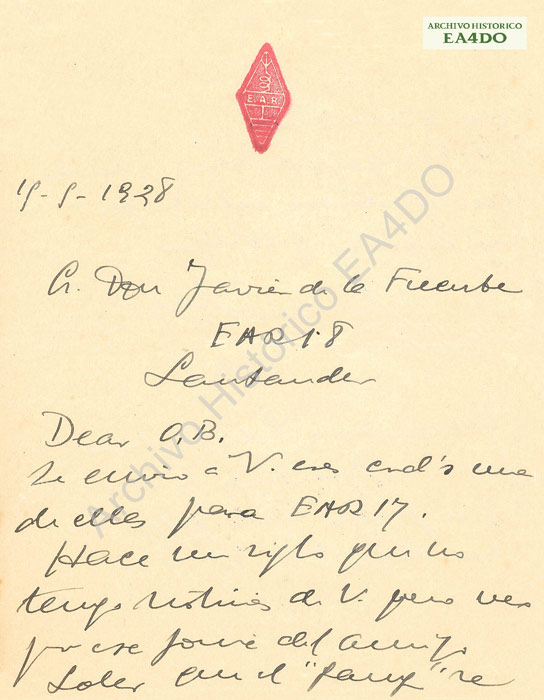 ARCHIVO HISTORICO
EA4DO
E.A.R.
1928
Sr. Don Javier de la Fuente
EAR 18
Santander
Dear O.B.
Le envio a V. esas crd's una
de ellas para EAR 17.
Hace un siglo que no
tengo noticias de V. pero veo
por ese del amigo
Soler que el "gang" re
Archivo Historico EA4DO